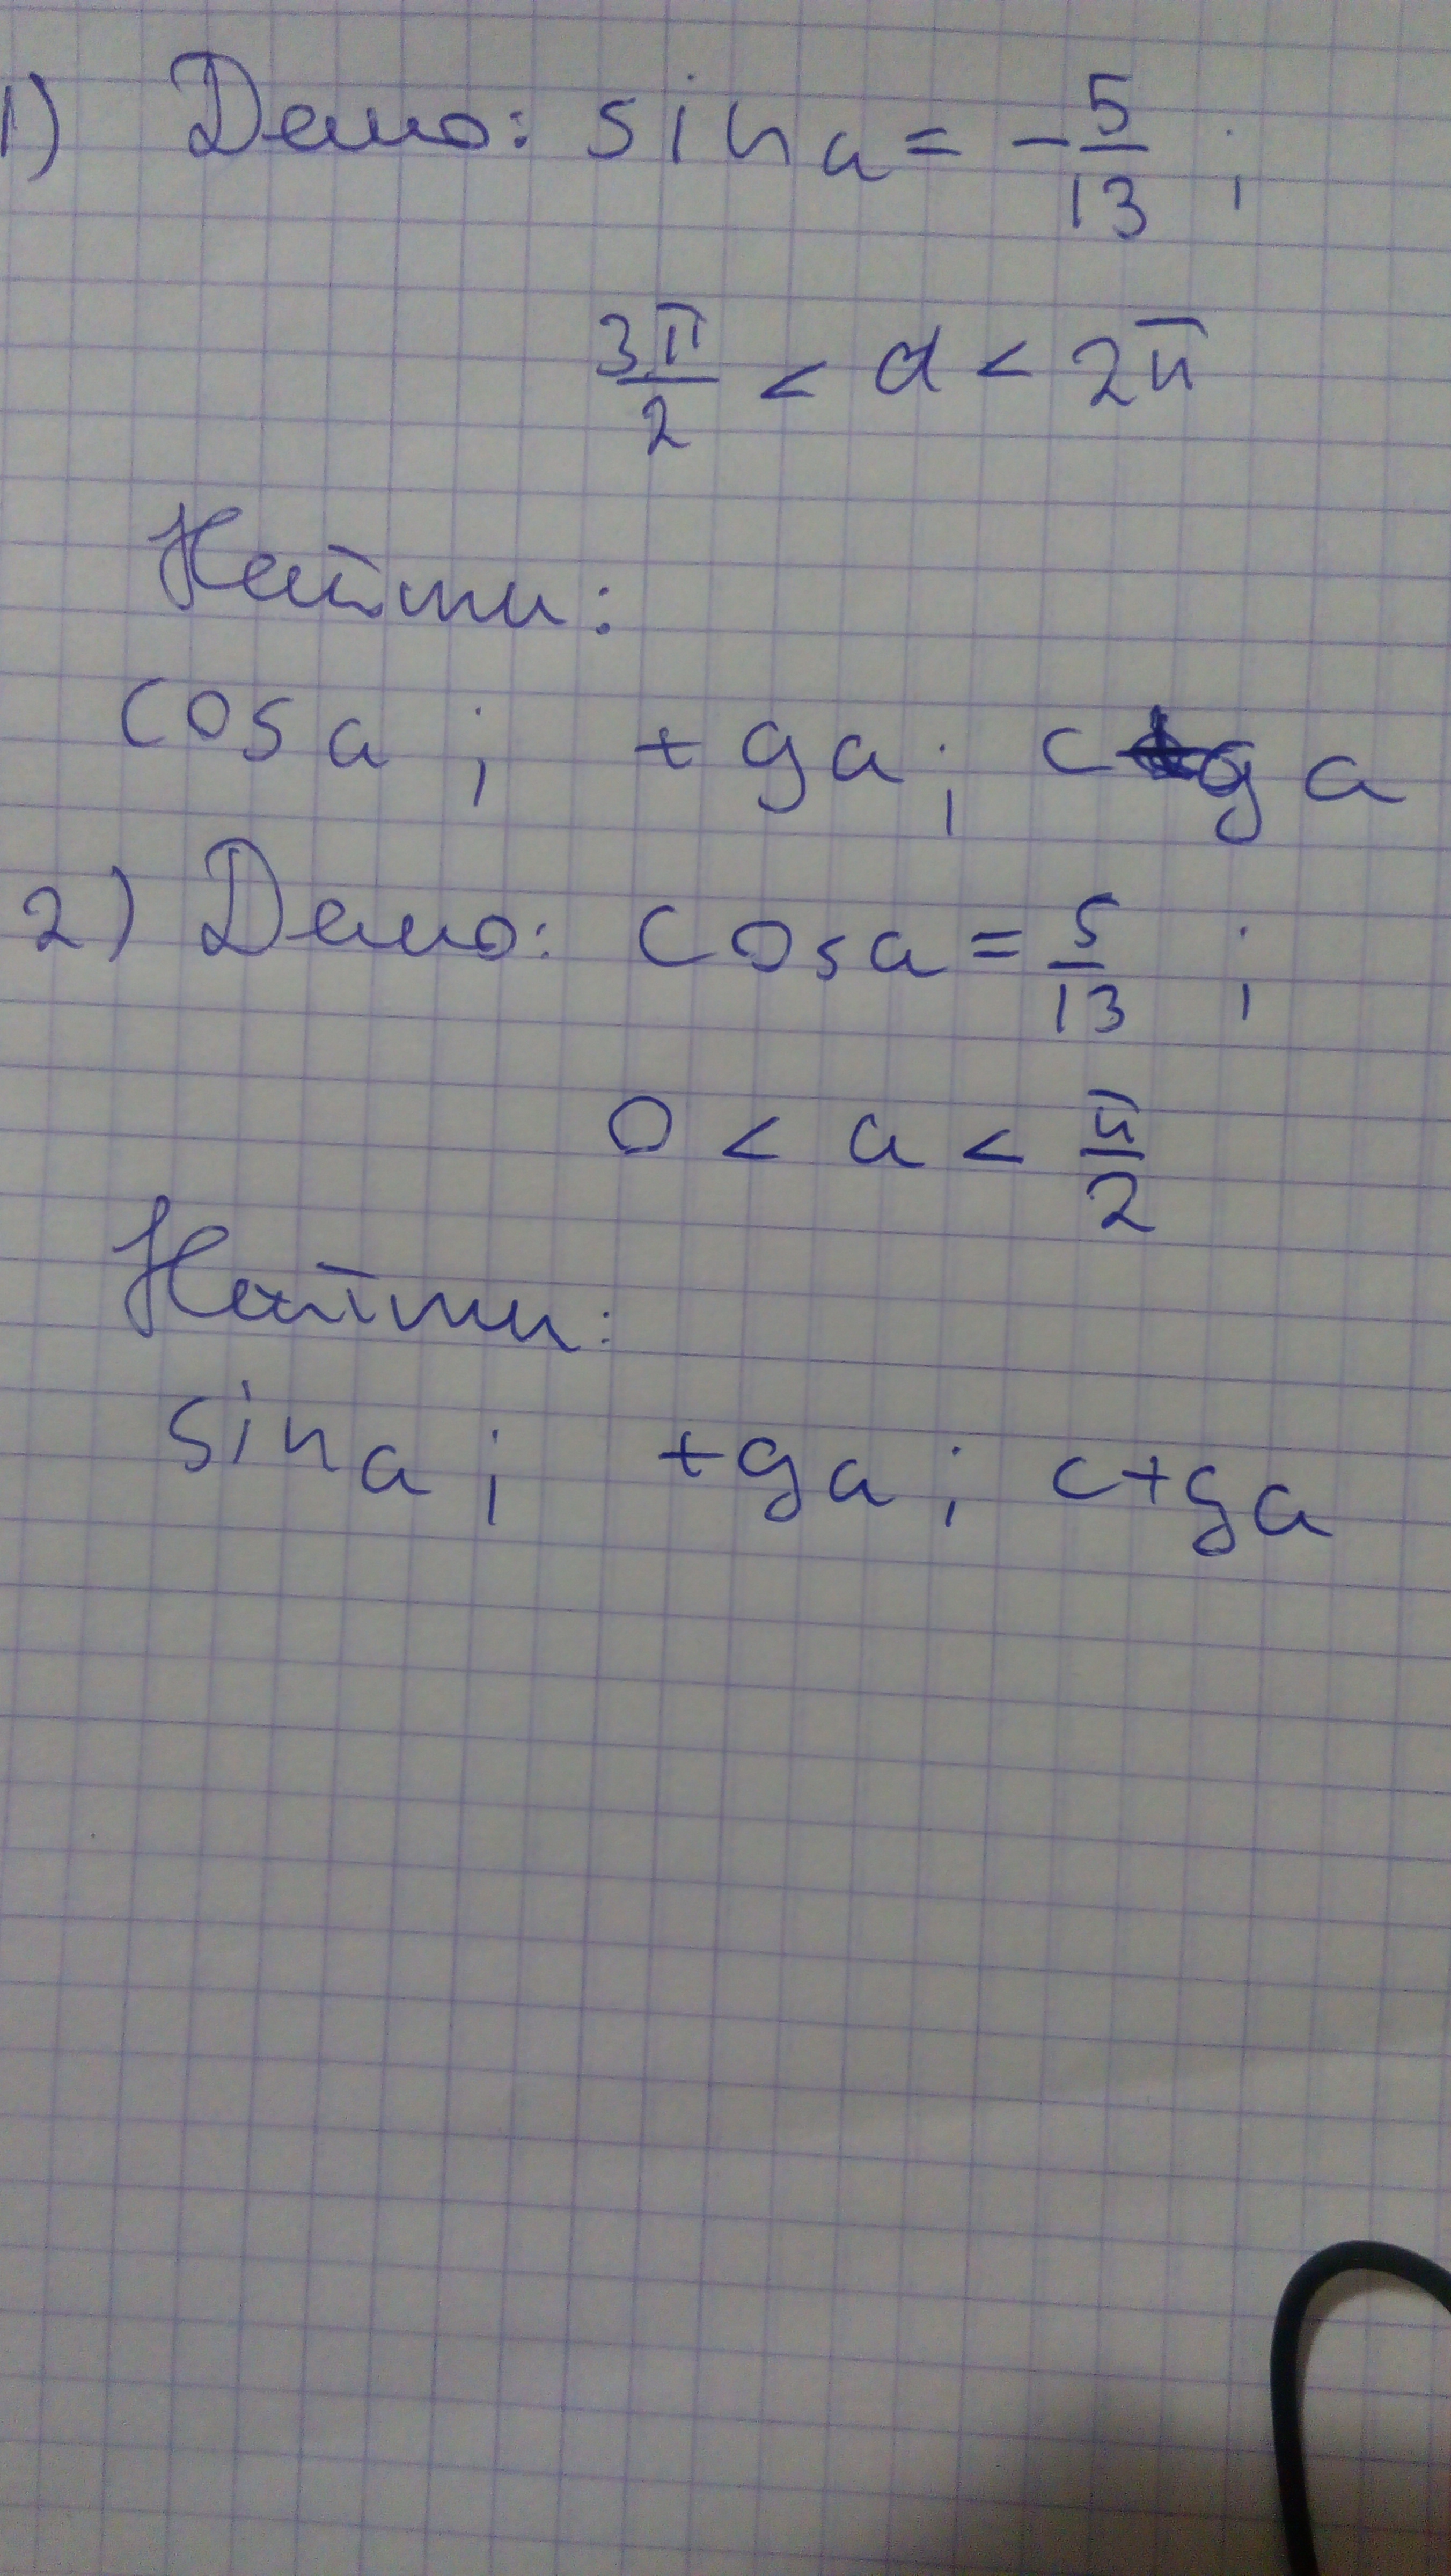 1) Дано: sin a = - 5/13 ;
3π/2 < α < 2π
Найти:
cos a ; tg a ; ctg a
2) Дано: cos a = 5/13 ;
0 < a < π/2
Найти:
sin a ; tg a ; ctg a